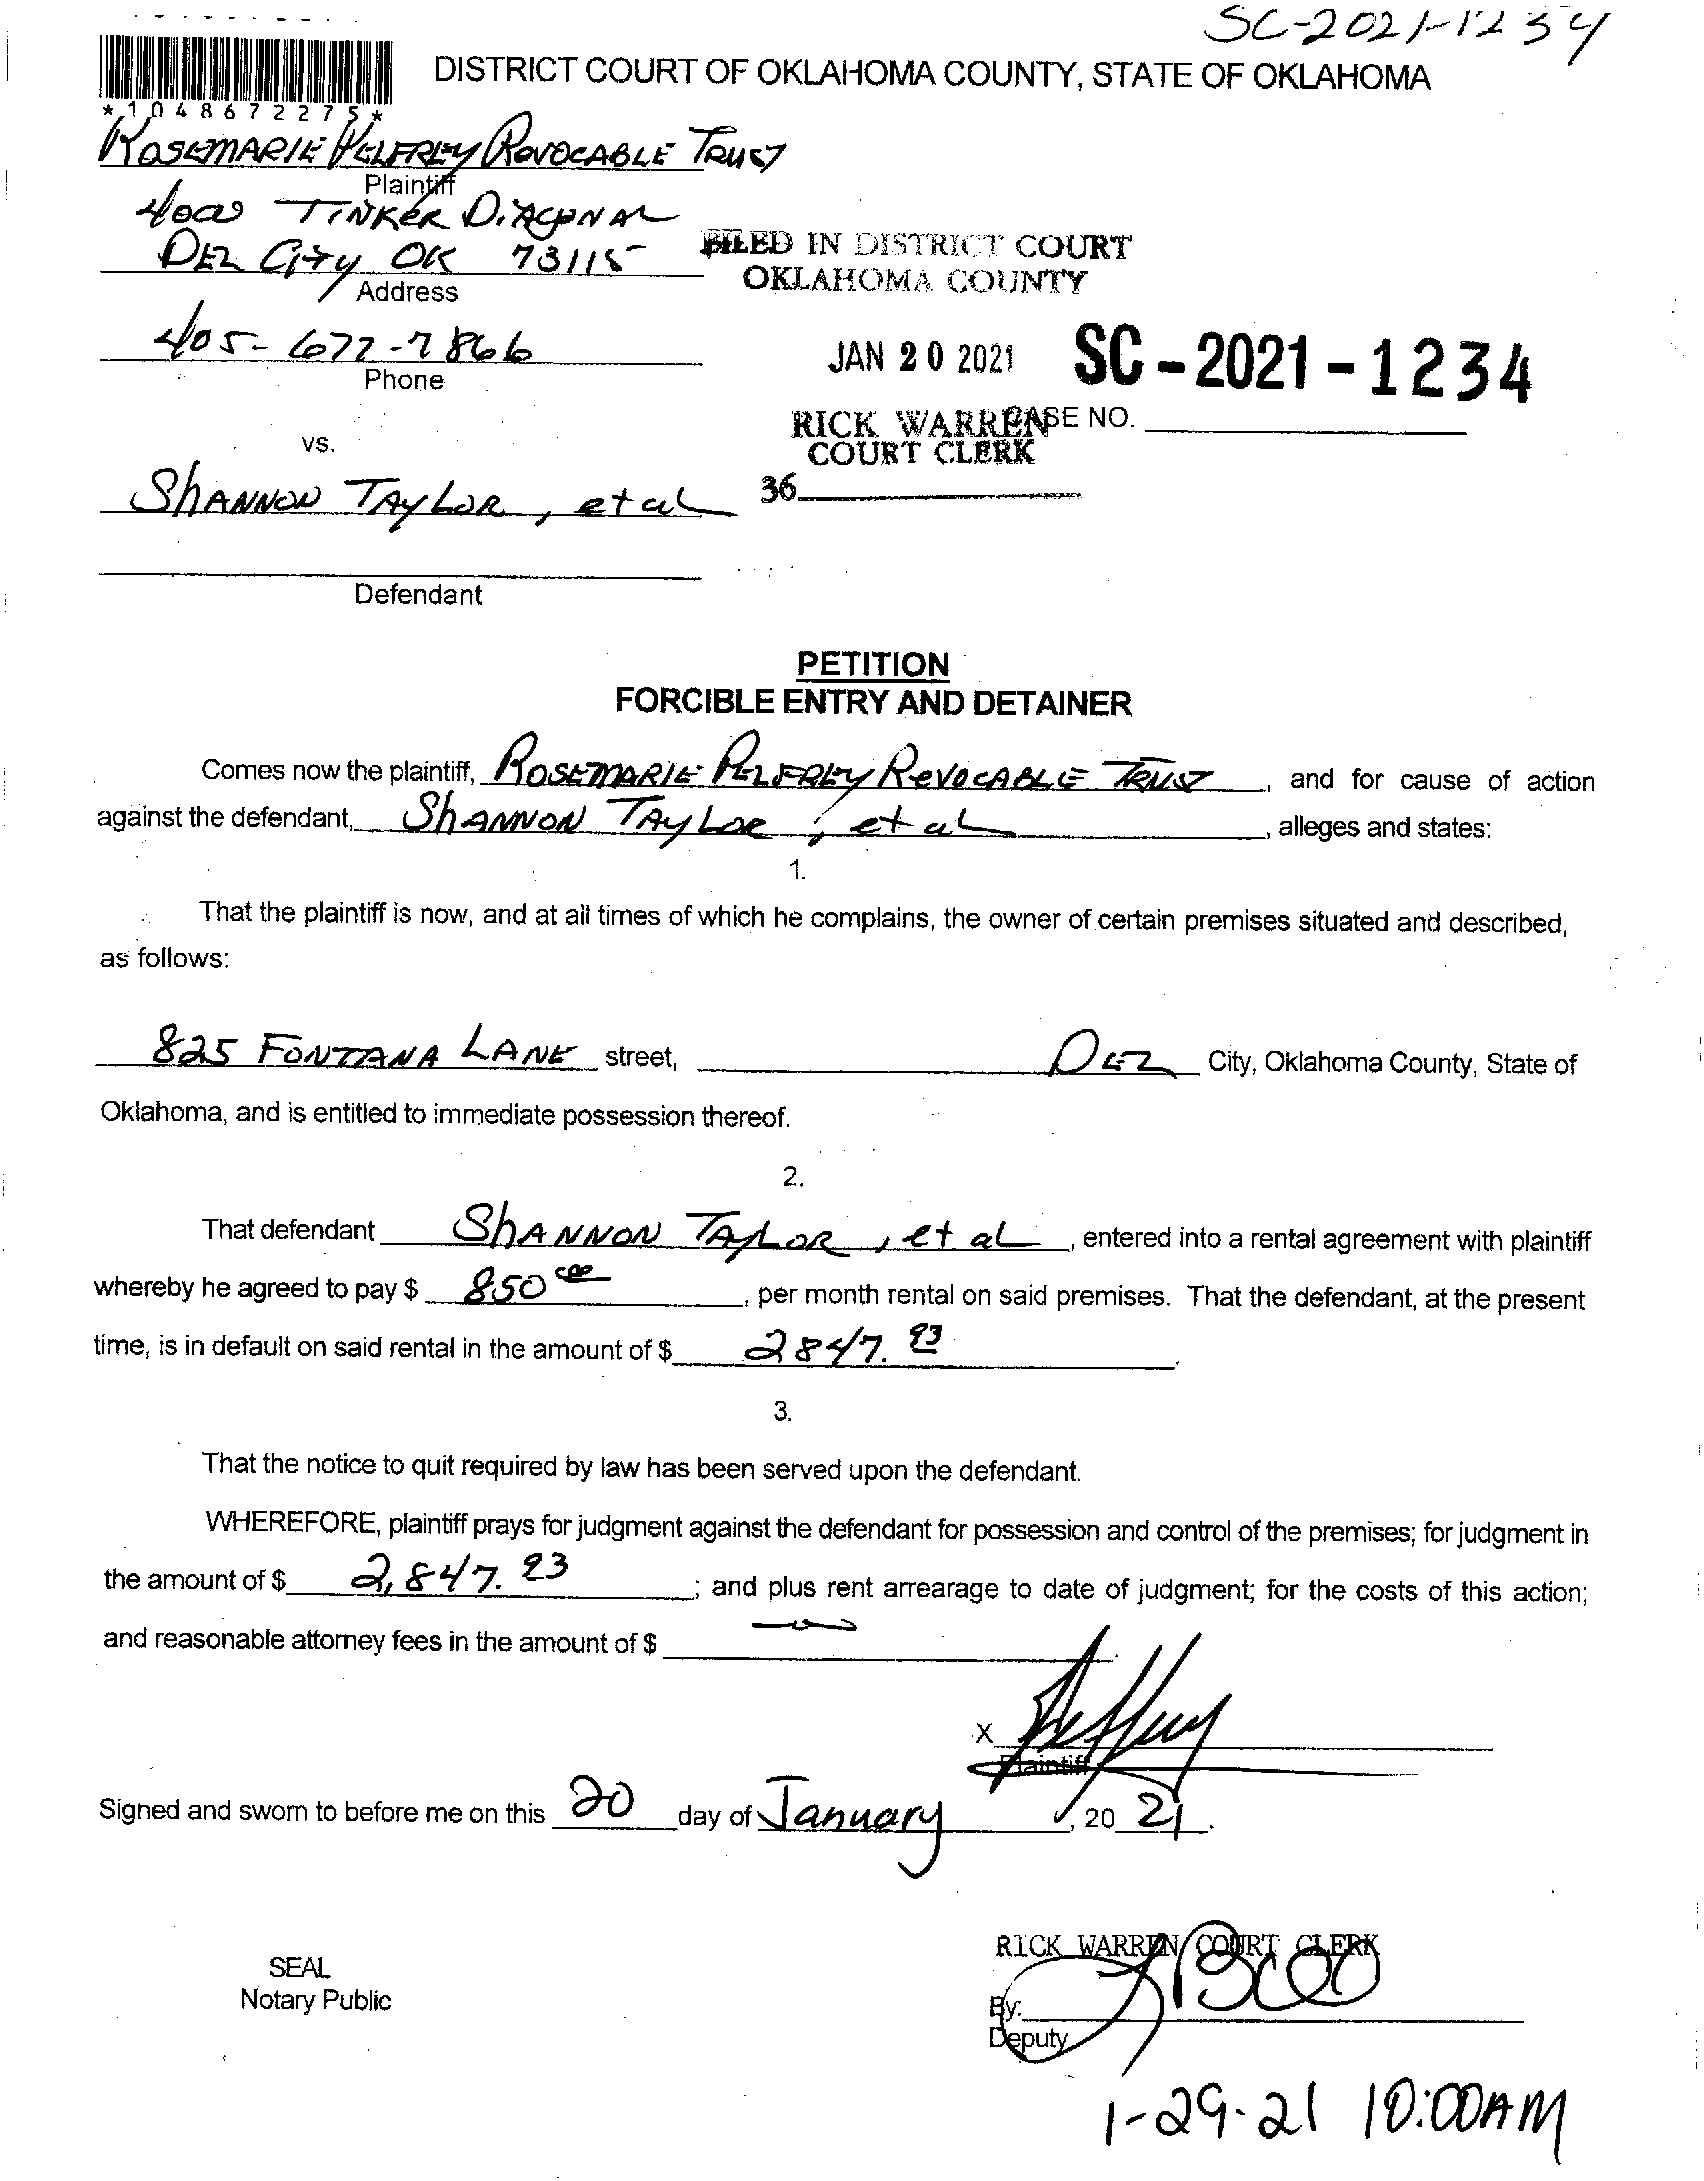 SC-2021-1234
DISTRICT COURT OF OKLAHOMA COUNTY, STATE OF OKLAHOMA
*1048672275*
ROSEMARIE PELFREY REVOCABLE TRUST
Plaintiff
4000 TINKER DIAGONAL
DEL CITY OK 73115
Address
FILED IN DISTRICT COURT
OKLAHOMA COUNTY
405-677-7866
Phone
JAN 20 2021
SC-2021-1234
RICK WARREN
COURT CLERK
CASE NO.
36
vs.
SHANNON TAYLOR, et al
Defendant
PETITION
FORCIBLE ENTRY AND DETAINER
Comes now the plaintiff, ROSEMARIE PELFREY REVOCABLE TRUST, and for cause of action
against the defendant, SHANNON TAYLOR, et al, alleges and states:
1.
That the plaintiff is now, and at all times of which he complains, the owner of certain premises situated and described,
as follows:
825 FONTANA LANE street, DEL City, Oklahoma County, State of
Oklahoma, and is entitled to immediate possession thereof.
2.
That defendant SHANNON TAYLOR, et al, entered into a rental agreement with plaintiff
whereby he agreed to pay $ 850 00, per month rental on said premises. That the defendant, at the present
time, is in default on said rental in the amount of $ 2847.93.
3.
That the notice to quit required by law has been served upon the defendant.
WHEREFORE, plaintiff prays for judgment against the defendant for possession and control of the premises; for judgment in
the amount of $ 2,847.93; and plus rent arrearage to date of judgment; for the costs of this action;
and reasonable attorney fees in the amount of $
X
Plaintiff
Signed and sworn to before me on this 20 day of January, 20 21.
RICK WARREN COURT CLERK
SEAL
Notary Public
By:
Deputy
1-29-21 10:00AM